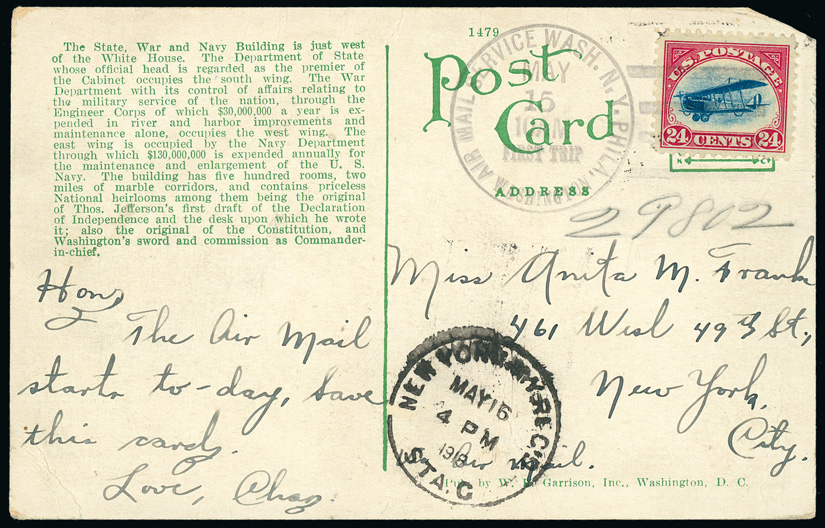 The State, War and Navy Building is just west
of the White House. The Department of State
whose official head is regarded as the premier of
the Cabinet occupies the south wing. The War
Department with its control of affairs relating to
the military service of the nation, through the
Engineer Corps of which $30,000,000 a year is ex-
pended in river and harbor improvements and
maintenance alone, occupies the west wing. The
east wing is occupied by the Navy Department
through which $130,000,000 is expended annually for
the maintenance and enlargement of the U. S.
Navy. The building has five hundred rooms, two
miles of marble corridors, and contains priceless
National heirlooms among them being the original
of Thos. Jefferson's first draft of the Declaration
of Independence and the desk upon which he wrote
it; also the original of the Constitution, and
Washington's sword and commission as Commander-
in-chief.
Hon,
The Air Mail
starts to-day, Save
this card.
Love, Chas.
1479
Post
Card
ADDRESS
AIR MAIL SERVICE WASH. N. Y. PHILA.
MAY
15
FIRST TRIP
WASHINGTON
U.S. POSTAGE
24 CENTS 24
29802
Miss Anita M. Frank
461 West 49th St.,
New York,
City.
Air Mail.
NEW YORK, N.Y. REC'D
MAY 15
4 PM
1918
STA. C
Pub. by W. B. Garrison, Inc., Washington, D. C.